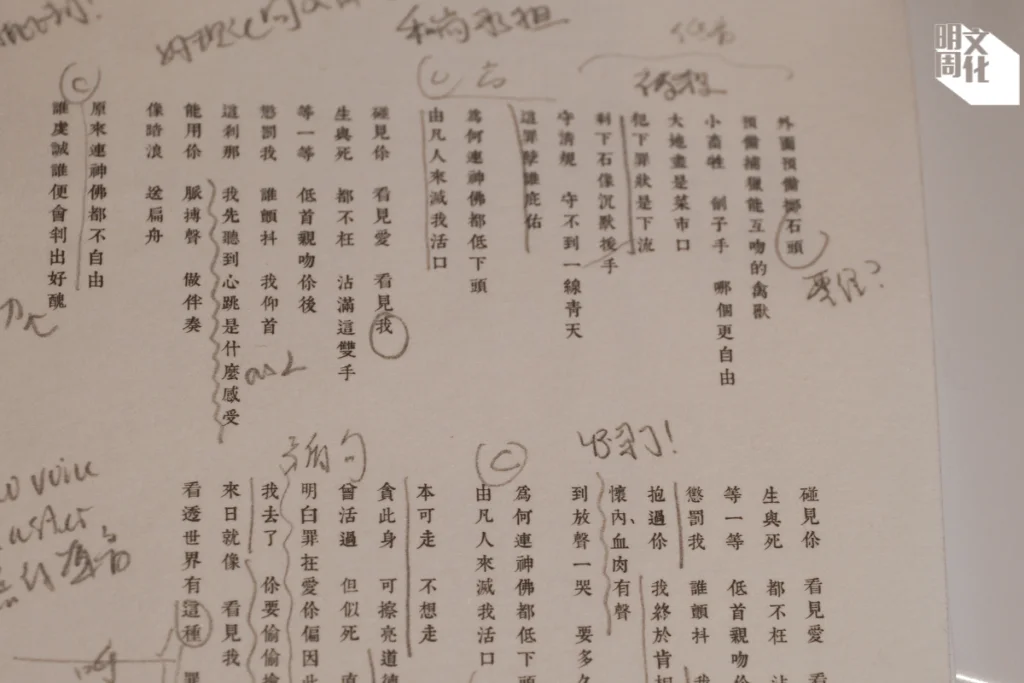 明周
文化
和尚承担
外面預備擲石頭
預備捕獵能互吻的禽獸
小畜牲 劊子手 哪個更自由
大地盡是菜市口
犯下罪狀是下流
剩下石像沉默援手
守清規 守不到一線青天
這罪孽誰庇佑
為何連神佛都低下頭
由凡人來滅我活口
碰見你 看見愛 看見我
生與死 都不枉 沾滿這雙手
等一等 低首親吻你後
懲罰我 誰顫抖 我仰首
這剎那 我先聽到心跳是什麼感受
能用你 脈搏聲 做伴奏
像暗浪 送扁舟
C
原來連神佛都不自由
誰虔誠誰便會判出好醜
碰見你 看見愛 看
生與死 都不枉 沾
等一等 低首親吻你
懲罰我 誰顫抖 我
抱過你 我終於肯相
懷內、血肉有聲
到放聲一哭 要多久
C
為何連神佛都低下頭
由凡人來滅我活口
本可走 不想走
貪此身 可擦亮道德
曾活過 但似死
明白罪在愛你偏因此
我去了 你要偷偷
來日就像 看見我
看透世界有這種 罪
voice